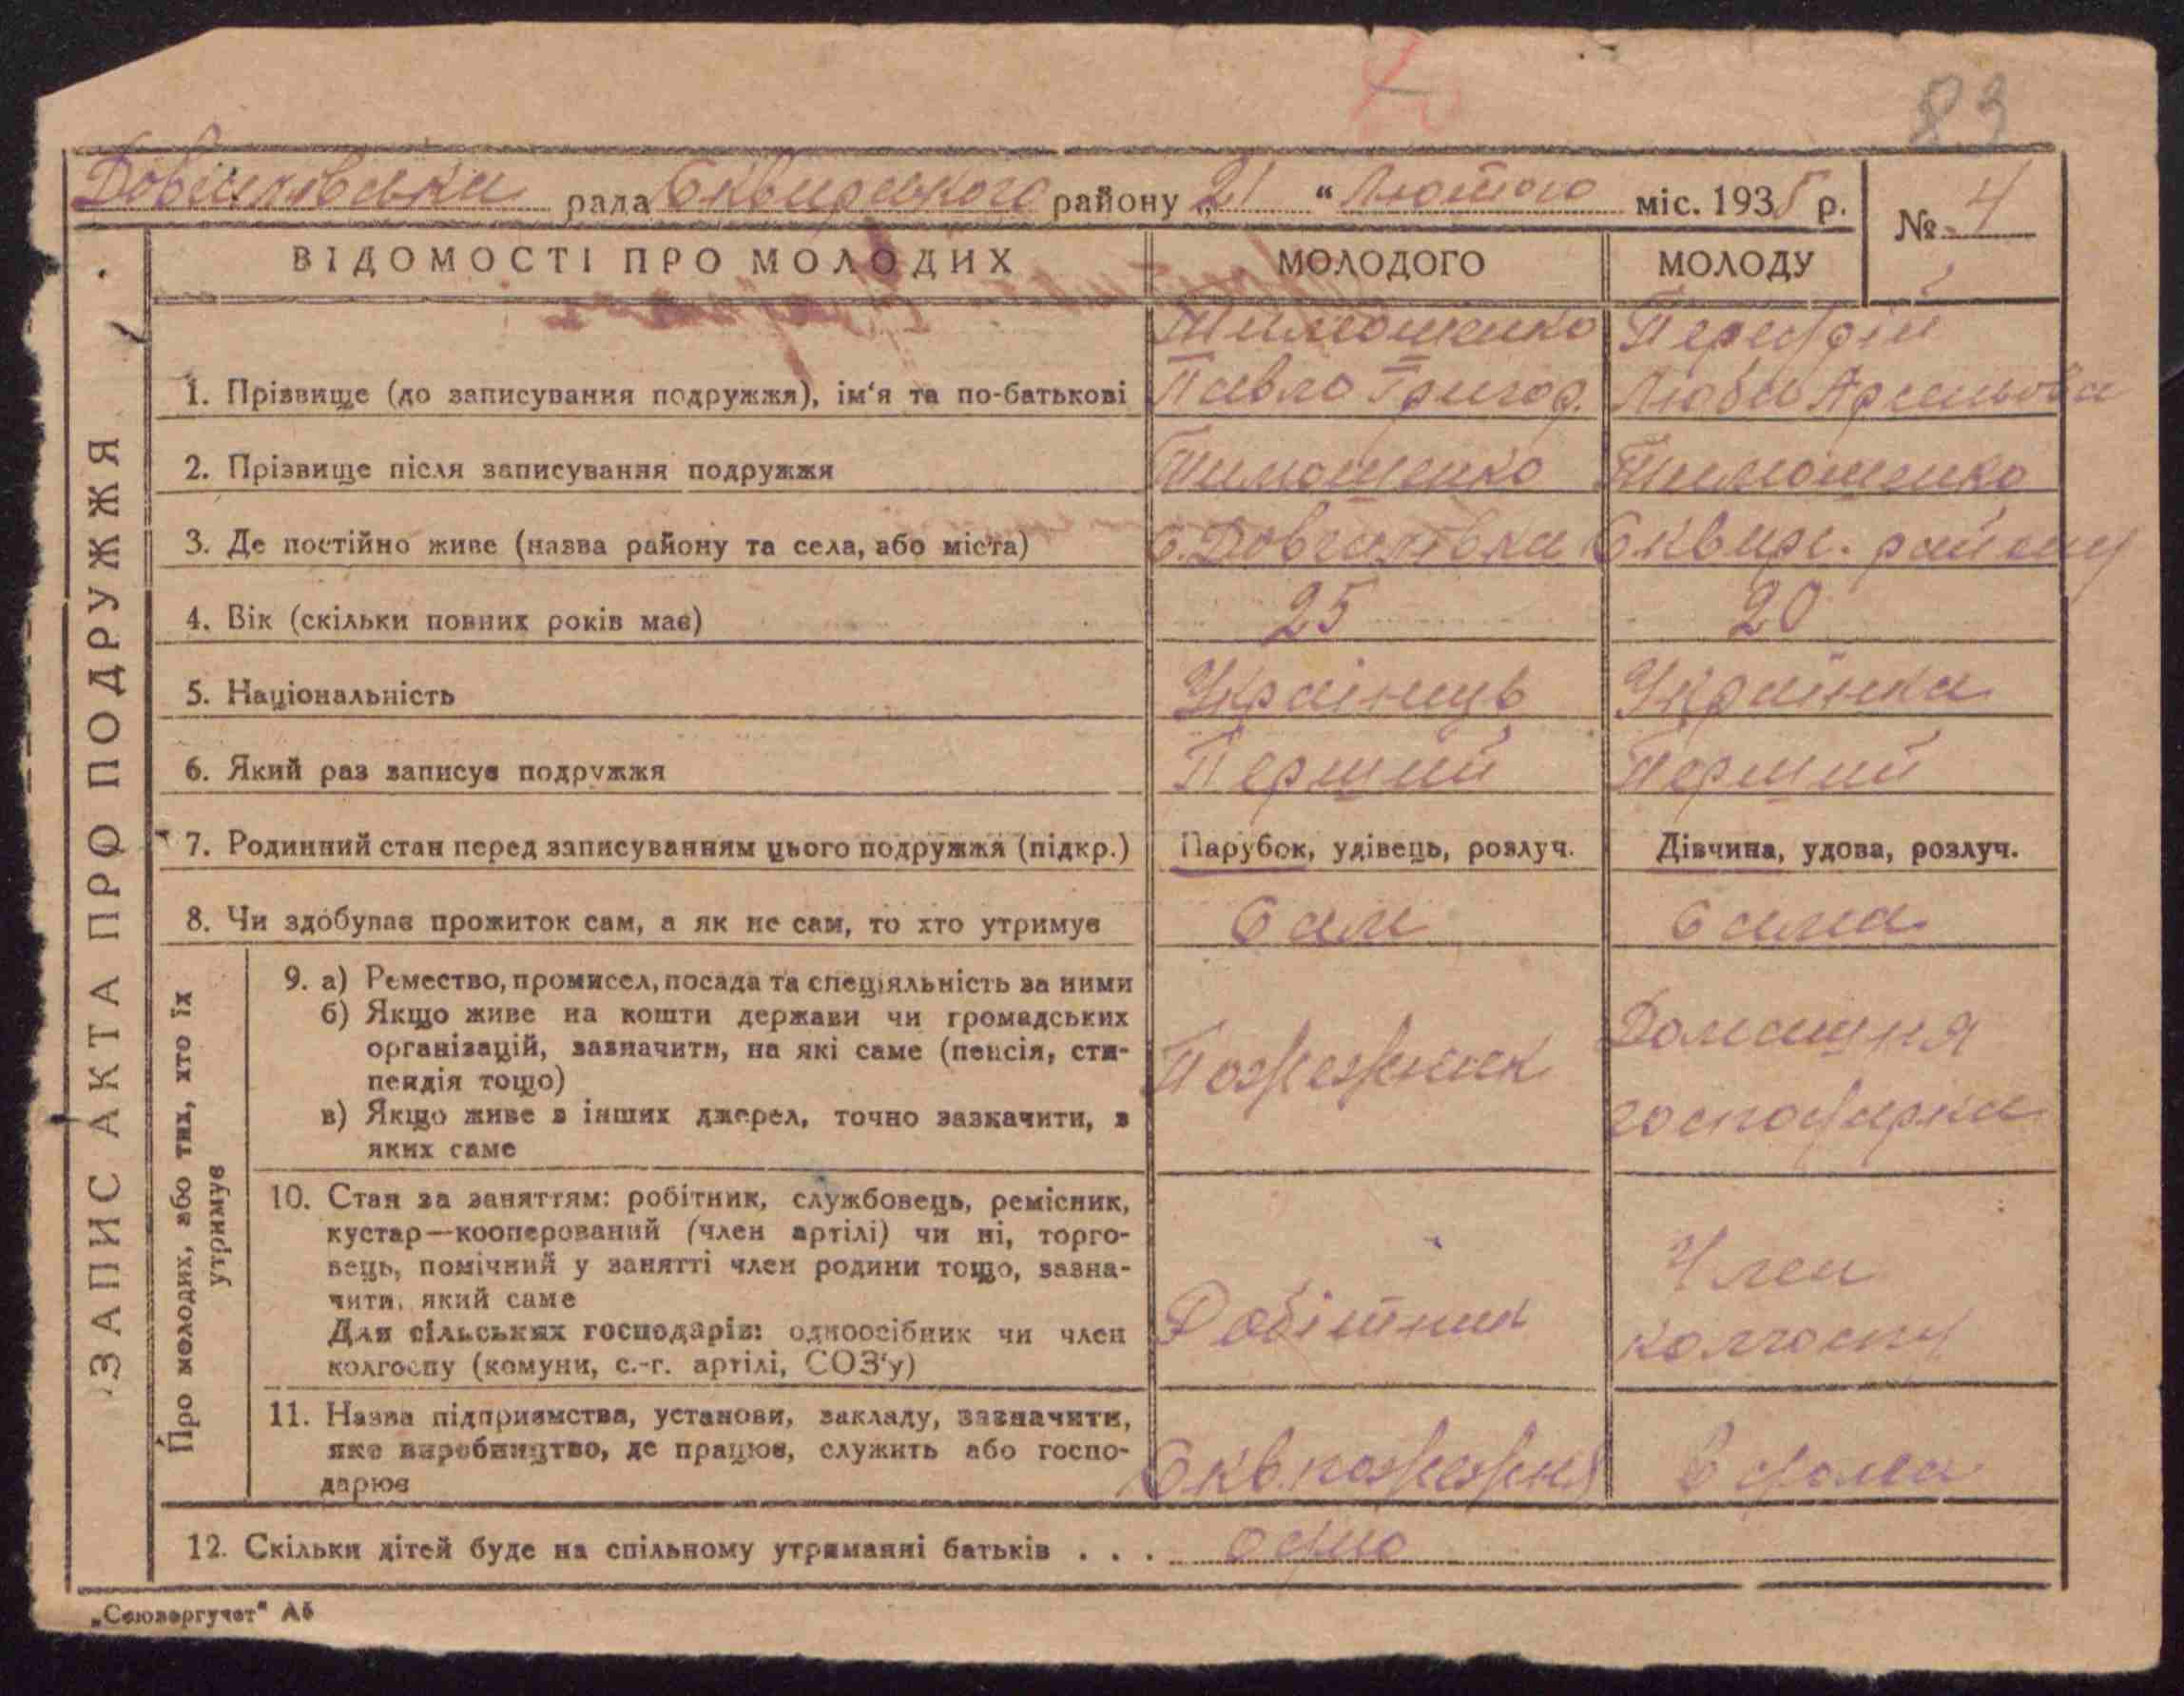 83
Довгалівська рада Сквирського району „21“ Лютого міс. 1935 р.
№ 4
ЗАПИС АКТА ПРО ПОДРУЖЖЯ
ВІДОМОСТІ ПРО МОЛОДИХ МОЛОДОГО МОЛОДУ
Тимошенко
Павло Григор.
1. Прізвище (до записування подружжя), ім‘я та по-батькові
Люба
2. Прізвище після записування подружжя Тимошенко Тимошенко
3. Де постійно живе (назва району та села, або міста) С. Довгалівка Сквирс. району
4. Вік (скільки повних років має) 25 20
5. Національність Українець Українка
6. Який раз записує подружжя Перший Перший
7. Родинний стан перед записуванням цього подружжя (підкр.) Парубок, удівець, розлуч. Дівчина, удова, розлуч.
8. Чи здобуває прожиток сам, а як не сам, то хто утримує Сам Сама
Про молодих, або тих, хто їх
утримує
9. а) Ремество, промисел, посада та спеціяльність за ними
б) Якщо живе на кошти держави чи громадських
організацій, зазначити, на які саме (пенсія, сти-
пендія тощо)
в) Якщо живе з інших джерел, точно зазначити, з
яких саме
Пожежник
Домашня
господарка
10. Стан за заняттям: робітник, службовець, ремісник,
кустар—кооперований (член артілі) чи ні, торго-
вець, помічний у занятті член родини тощо, зазна-
чити, який саме
Для сільських господарів: одноосібник чи член
колгоспу (комуни, с.-г. артілі, СОЗ‘у)
Робітник
Член
колгоспу
11. Назва підприємства, установи, закладу, зазначити,
яке виробництво, де працює, служить або госпо-
дарює
Скв. пожежня
В дома
12. Скільки дітей буде на спільному утриманні батьків . . . одно
„Союзоргучет“ А5